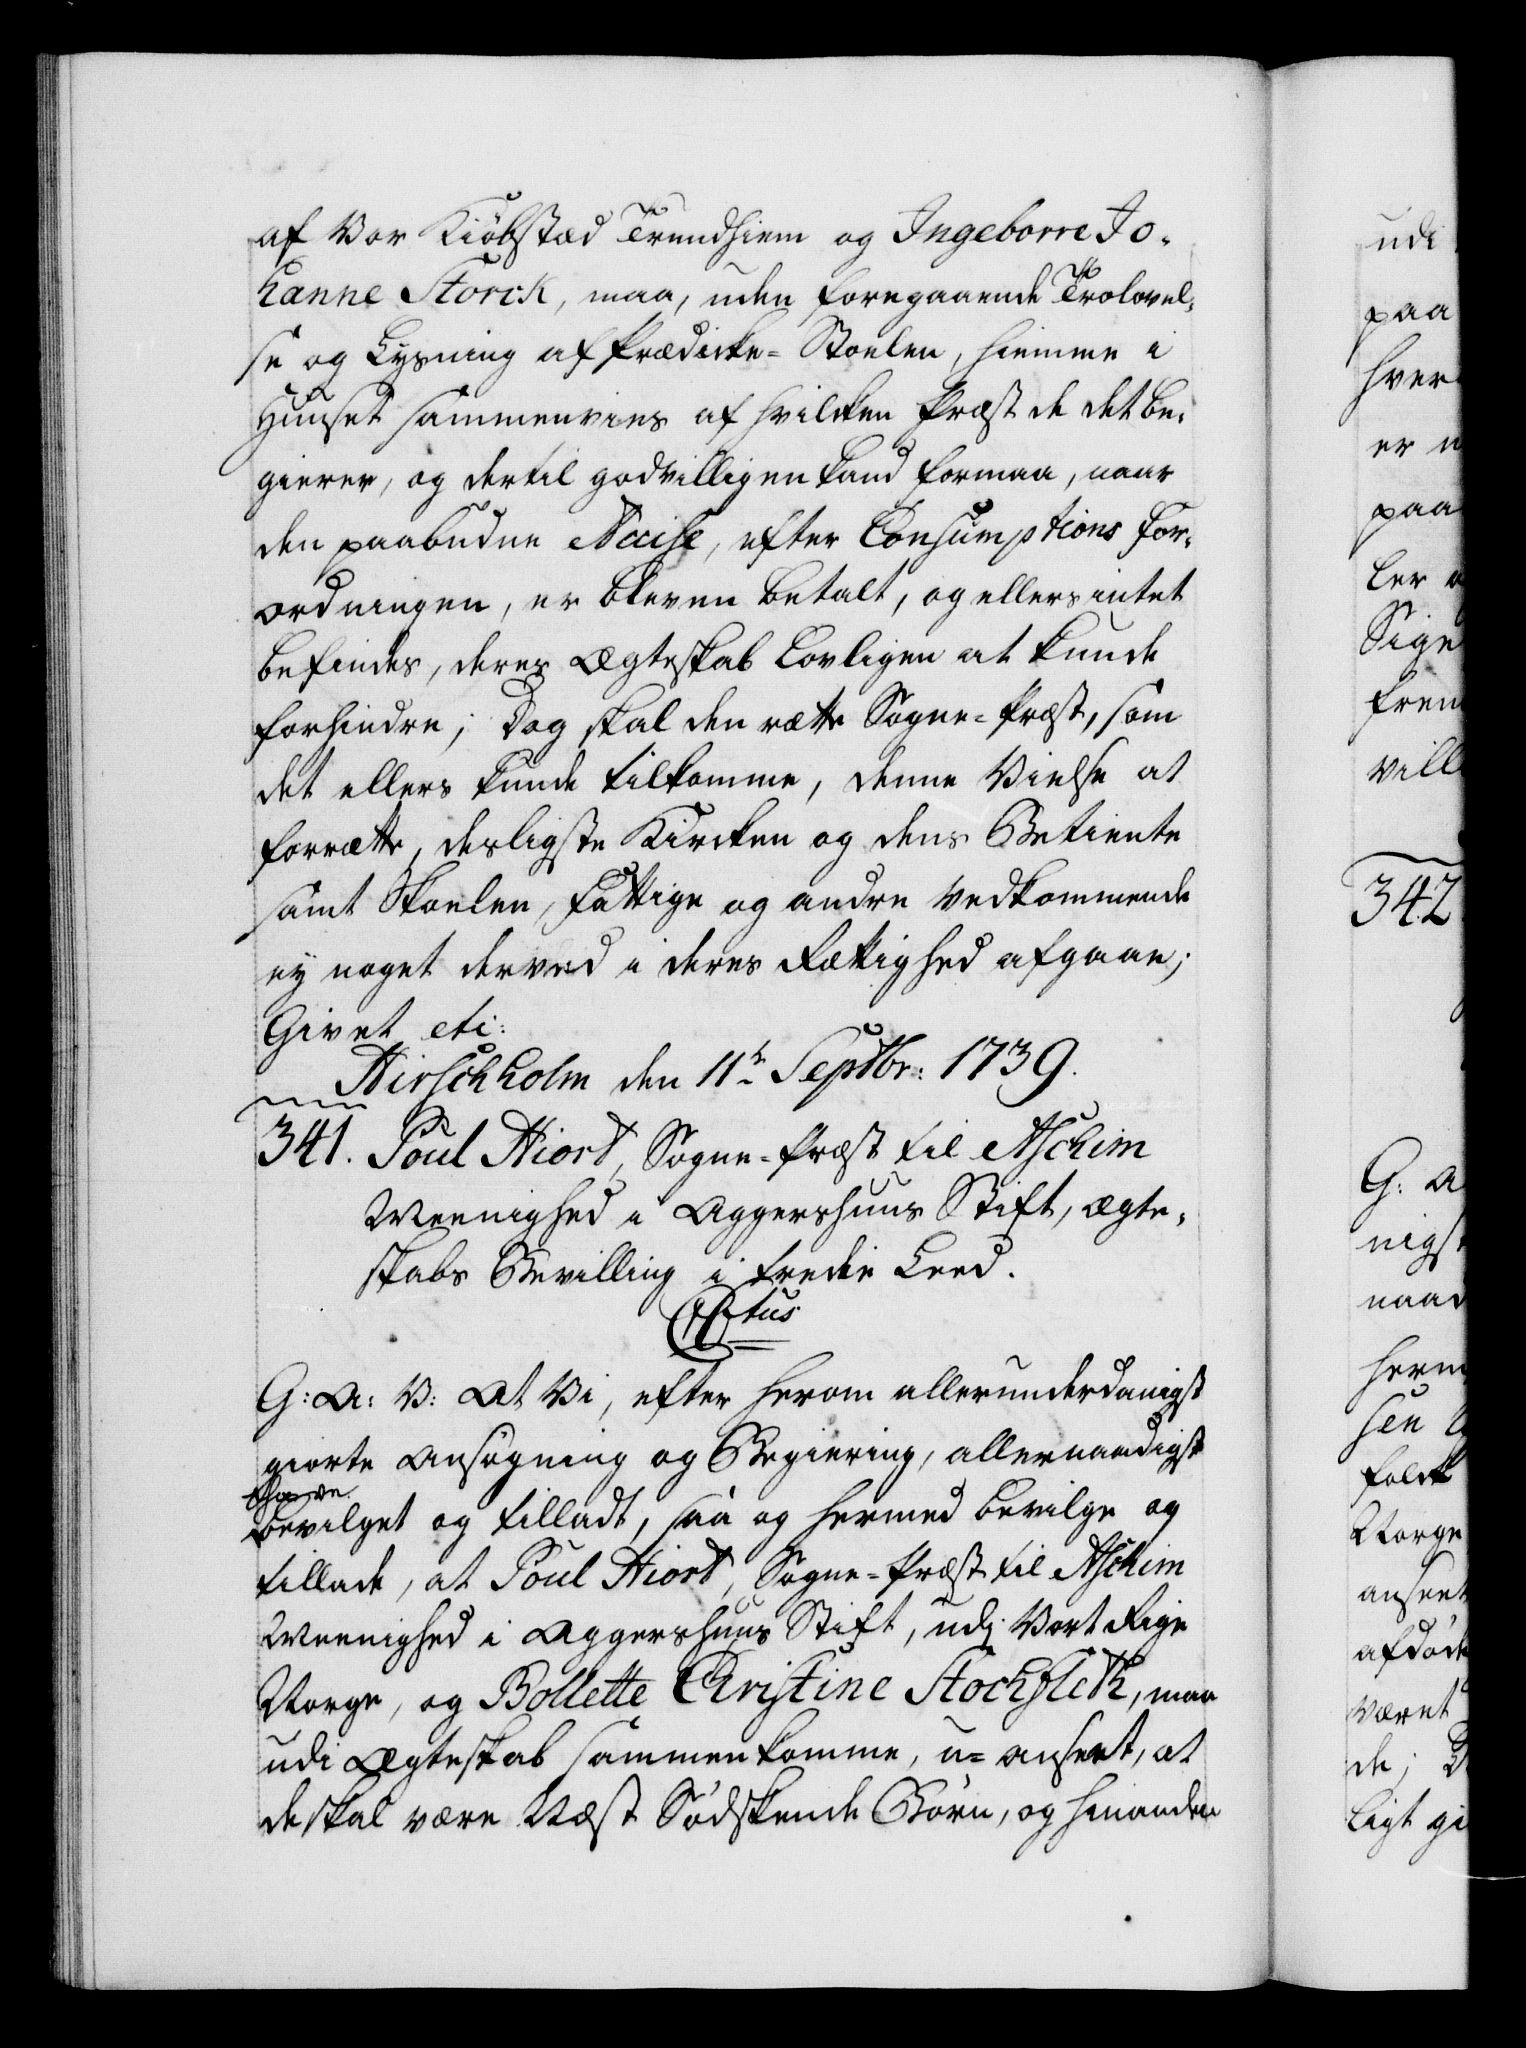 af Vor Kiöbstæd Trundhiem og Ingeborre Jo-
hanne Storck, maa, uden foregaaende Trolovel-
se og Lysning af Prædicke-Stoelen, hiemme i
Huuset sammenvies af hvilcken Præst de det be-
gierer, og dertil godvilligen kand formaa, naar
den paabudne Accise, efter Consumptions For-
ordningen, er bleven betalt, og ellers intet
befindes, deres Ægteskab lovligen at kunde
forhindre; Dog skal den rætte Sogne-Præst, som
det ellers kunde tilkomme, denne Vielse at
forrætte, desligste Kircken og dens Betiente
samt Skoelen, Fattige og andre Vedkommende
ey noget derved i deres Rættighed afgaae;
Givet etc:
Hirschholm den 11te Septbr: 1739.
341. Poul Hiort, Sogne-Præst til Aschim
Meenighed i Aggershuus Stift, Ægte-
skabs Bevilling i tredie Leed.
Cito
G: A: V: At Vi, efter herom allerunderdanigst
giorte Ansøgning og Begiering, allernaadigst
have
bevilget og tilladt, saa og hermed bevilge og
tillade, at Poul Hiort, Sogne-Præst til Aschim
Meenighed i Aggershuus Stift, udj Vort Rige
Norge, og Bollette Christine Stochfleth, maa
udi Ægteskab sammenkomme, u-anseet, at
de skal være Næst Södskende Börn, og hinanden
udi
paa
hver
er
paa
ler
Sige
frem
vill
342
G: A
nigst
naad
herm
sen
folck
Norge
anseet
afdöde
været
de;
ligt gi